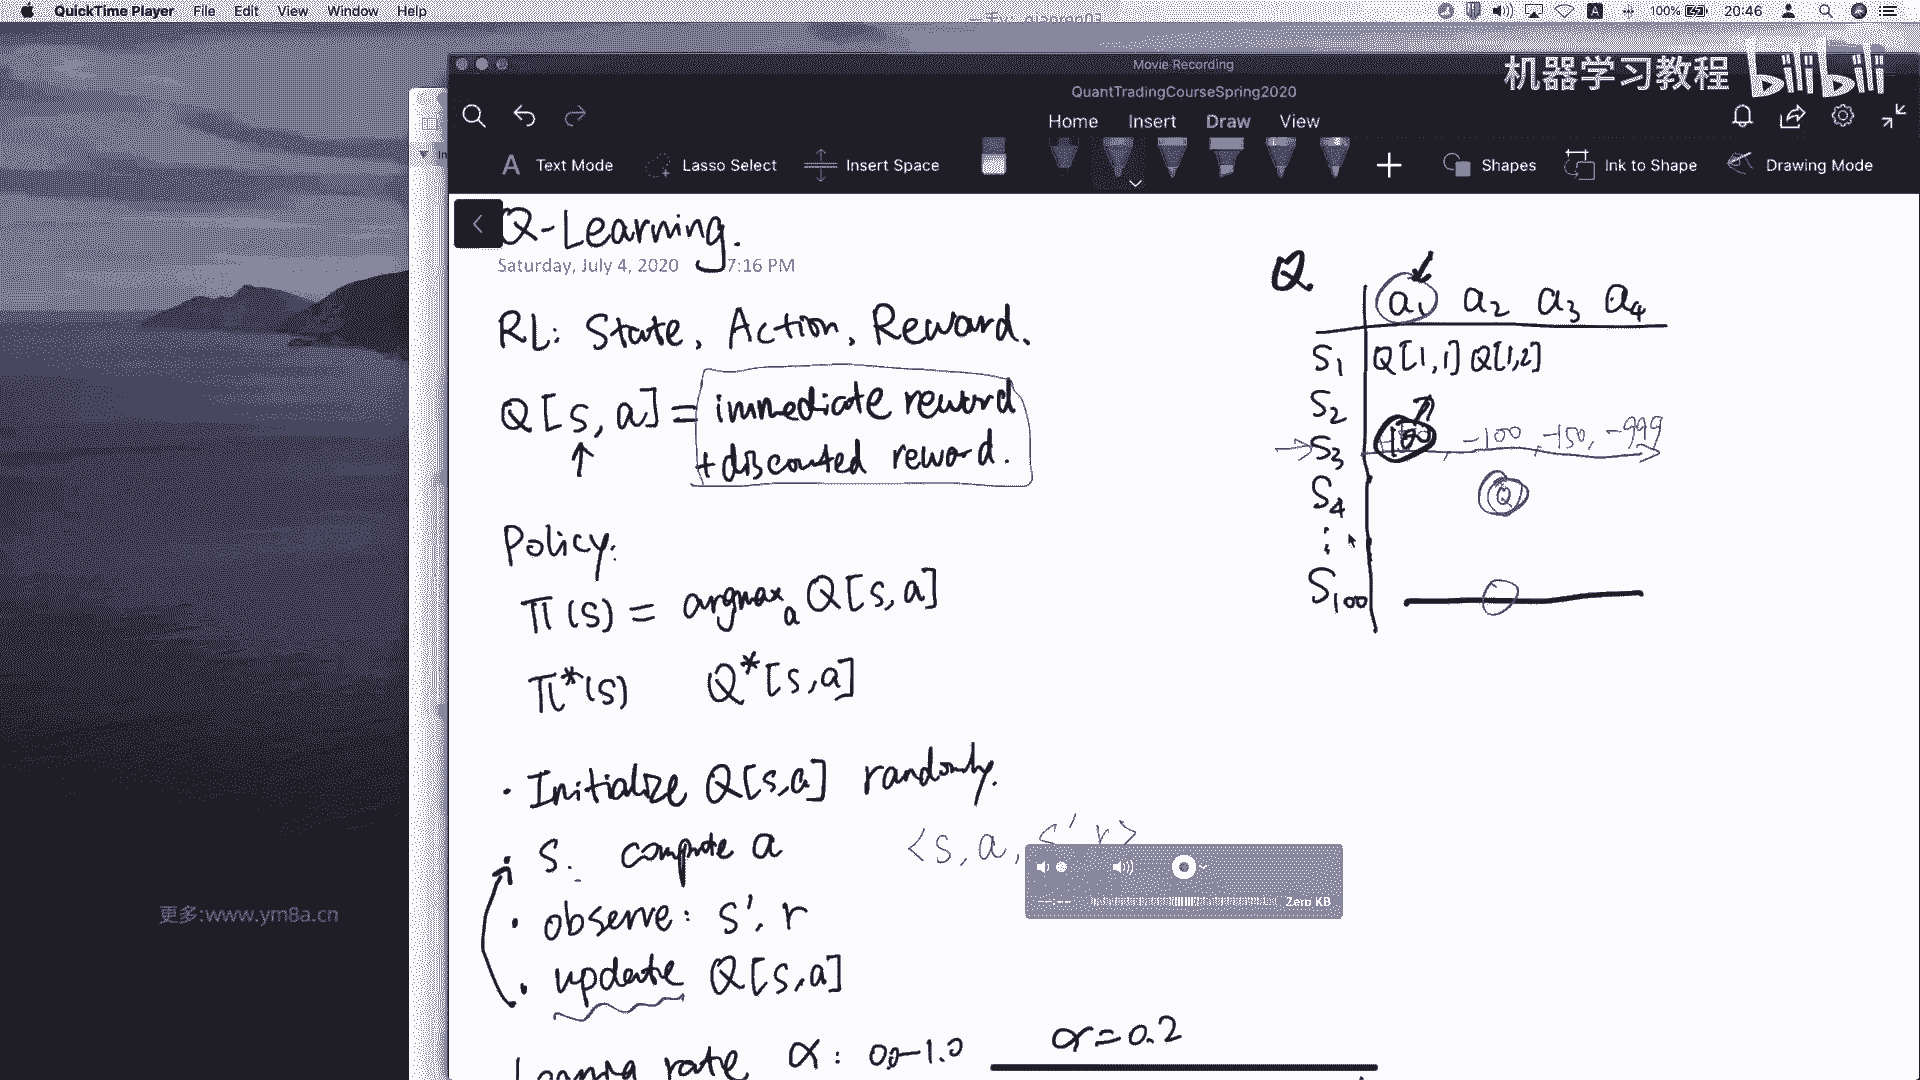 QuickTime Player File Edit View Window Help 100% 20:46
Movie Recording
机器学习教程 bilibili
QuantTradingCourseSpring2020
Home Insert Draw View
A Text Mode Lasso Select Insert Space Shapes Ink to Shape Drawing Mode
Q-Learning.
Saturday, July 4, 2020 7:16 PM
RL: State, Action, Reward.
Q[s,a] = immediate reword
+ discounted reword.
Policy:
π(s) = argmax a Q[s,a]
π*(s) Q*[s,a]
· Initialize Q[s,a] randomly.
· s. compute a <s, a, s' r>
· observe: s', r
· update Q[s,a]
Learning rate α: 0.0-1.0 α=0.2
Q
a1 a2 a3 a4
S1 Q[1,1] Q[1,2]
S2
S3 100, -100, -150, -999
S4 Q
⋮
S100
Zero KB
更多:www.ym8a.cn